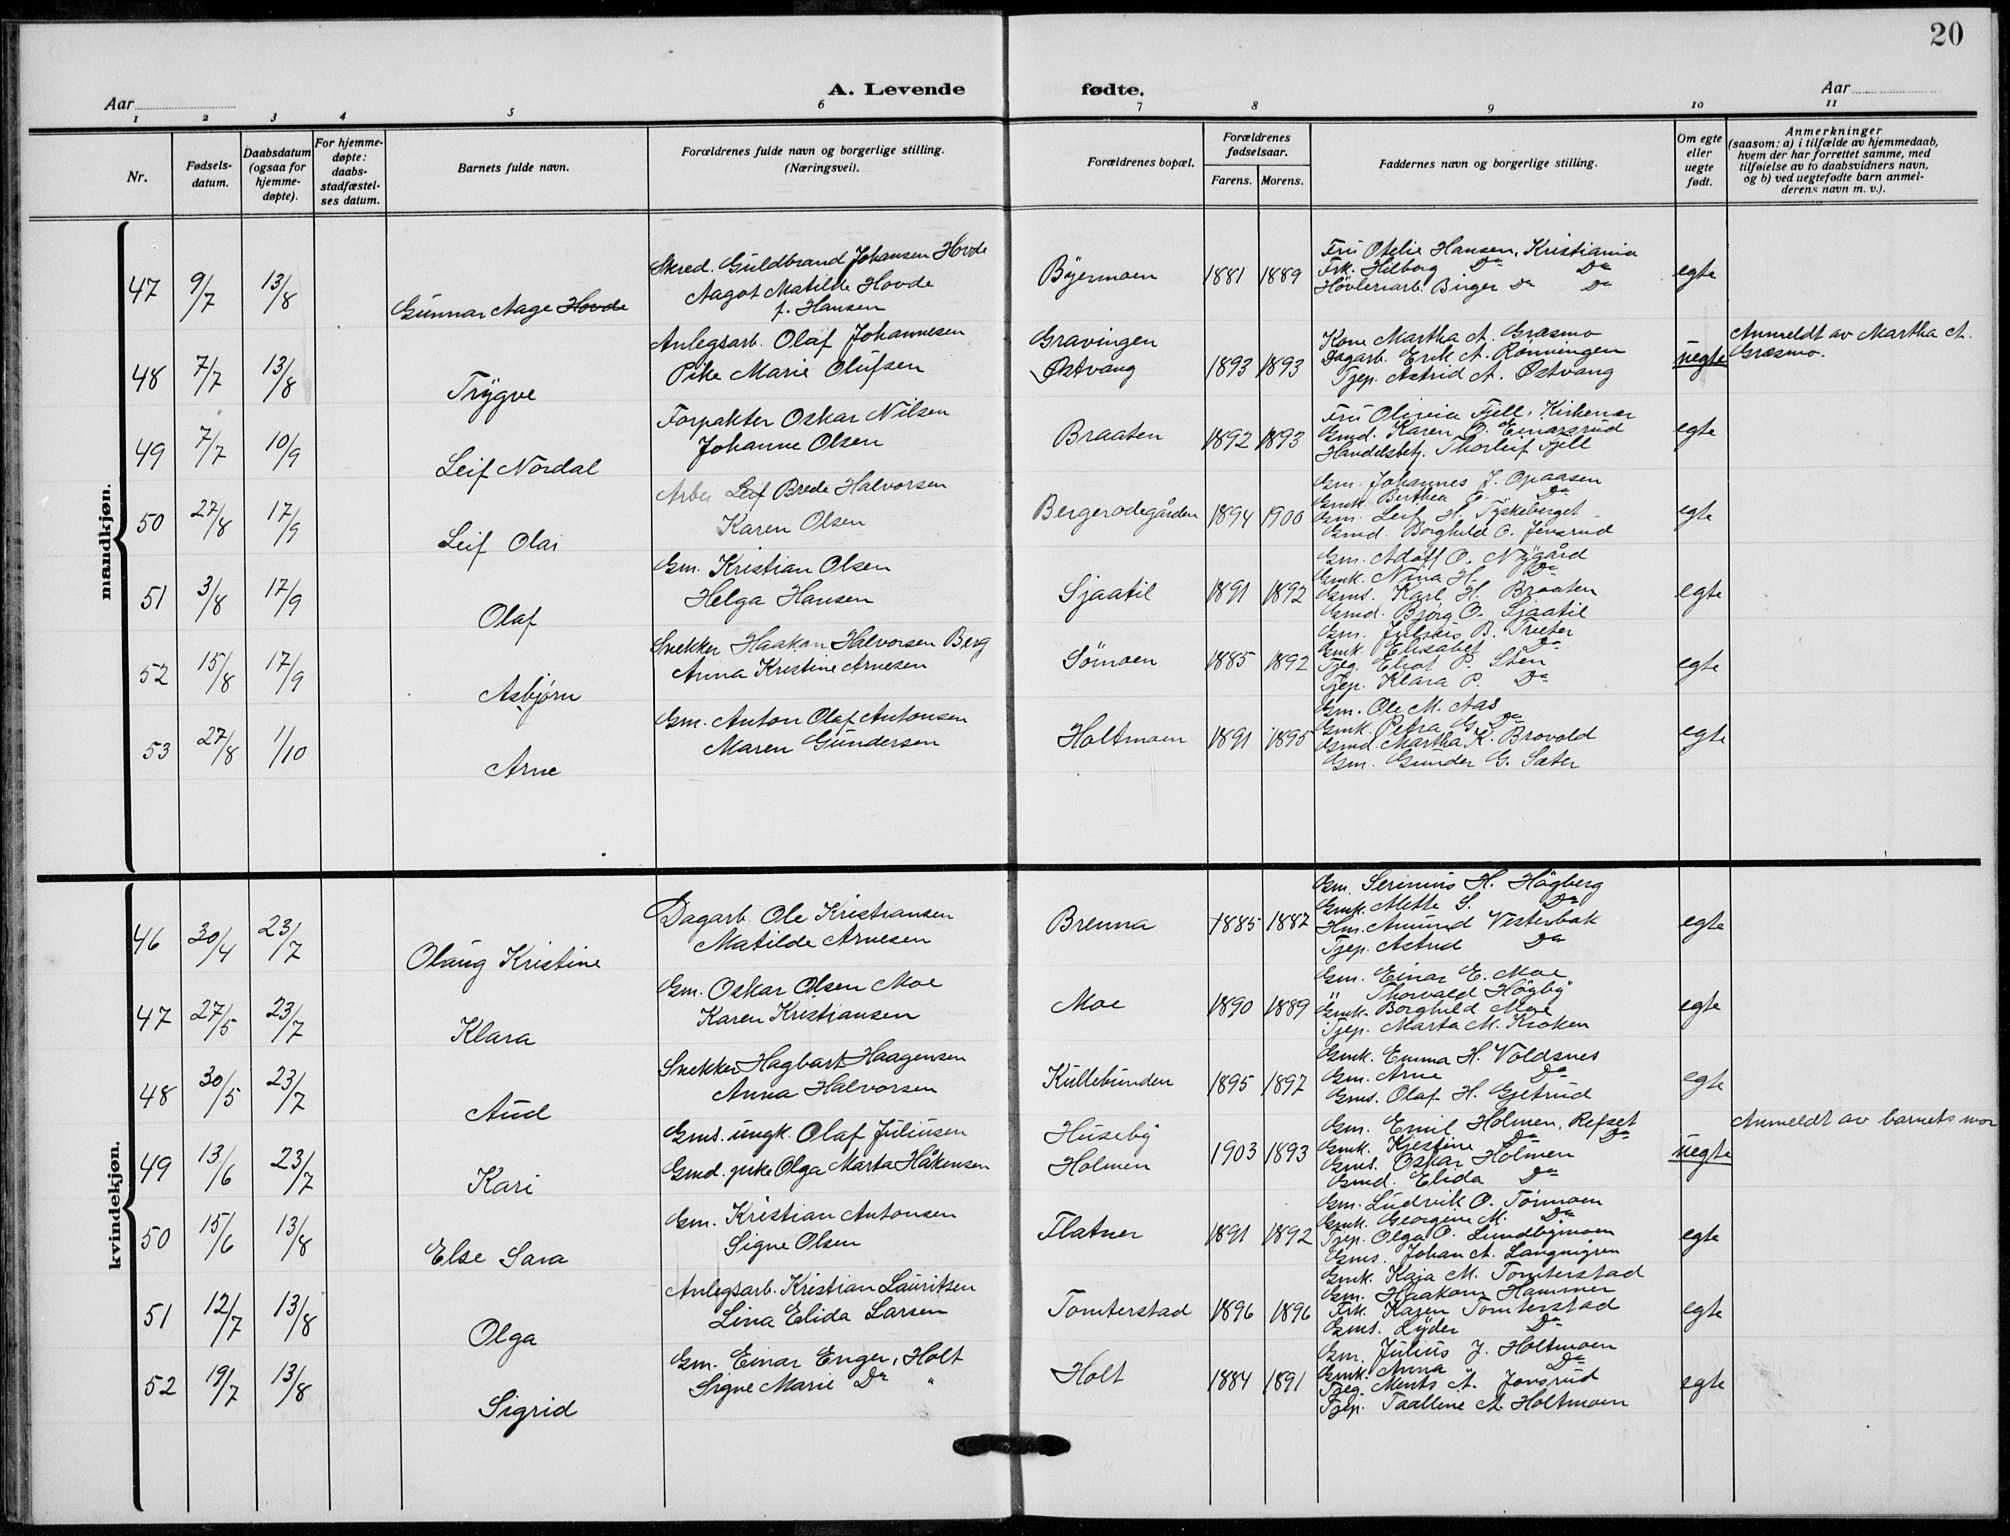 20
A. Levende fødte.
Aar
Aar
1 2 3 4 5 6 7 8 9 10 11
Nr.
Fødsels-datum.
Daabsdatum (ogsaa for hjemme-døpte).
For hjemme-døpte: daabs-stadfæstel-ses datum.
Barnets fulde navn.
Forældrenes fulde navn og borgerlige stilling. (Næringsvei).
Forældrenes bopæl.
Forældrenes fødselsaar.
Farens. Morens.
Faddernes navn og borgerlige stilling.
Om egte eller uegte født.
Anmerkninger
(saasom: a) i tilfælde av hjemmedaab,
hvem der har forrettet samme, med
tilføielse av to daabsvidners navn,
og b) ved uegtefødte barn anmel-
derens navn m. v.).
mandkjøn.
47 9/7 13/8 Gunnar Aage Hovde
Skred. Guldbrand Johansen Hovde
Aagot Matilde Hovde
f. Hansen
Byermoen 1881 1889
Fru Otelie Hansen, Kristiania
Frk. Hilborg Do Do
Høvleriarb. Birger Do Do
egte
48 7/7 13/8 Trygve
Anlegsarb. Olaf Johannesen
Pike Marie Olufsen
Gravingen
Østvang 1893 1893
Kone Martha A. Græsmo
Dagarb. Erik A. Rønningen
Tjep. Astrid A. Østvang
uegte
Anmeldt av Martha A.
Græsmo.
49 7/7 10/9 Leif Nordal
Forpakter Oskar Nilsen
Johanne Olsen
Braaten 1892 1893
Fru Olivia Fjell, Kirkenær
Gmd. Karen O. Einarsrud
Handelsbetj. Thorleif Fjell
egte
50 27/8 17/9 Leif Olai
Arbei Leif Brede Halvorsen
Karen Olsen
Bergerodegården 1894 1900
Gm. Johannes J. Opaasen
Gmk. Berthea Do
Gm. Leif H. Tyskeberget
Gmd. Borghild O. Jensrud
egte
51 3/8 17/9 Olaf
Gm. Kristian Olsen
Helga Hansen
Sjaatil 1891 1892
Gm. Adolf O. Nygård
Gmk. Nina H. Do
Gms. Karl H. Braaten
Gmd. Bjørg O. Sjaatil
egte
52 15/8 17/9 Asbjørn
Snekker Haakon Halvorsen Berg
Anna Kristine Arnesen
Sømoen 1885 1892
Gm. Julius B.
Gmk. Elisabet Do
Tjeg. P. Sten
Tjep. Klara P. Do
egte
53 27/8 1/10 Arne
Gm. Anton Olaf Antonsen
Maren Gundersen
Holtmoen 1891 1895
Gm. Ole M. Aas
Gmk. Petra G. Do
Gmd. Martha K. Brovold
Gm. Gunder G. Sæter
egte
kvindekjøn.
46 30/4 23/7 Olaug Kristine
Dagarb. Ole Kristiansen
Matilde Arnesen
Brenna 1885 1887
Gm. Serinius H. Høgberg
Gmk. Mette S. Do
Hm. Amund Vesterbak
Tjep. Astrid Do
egte
47 27/5 23/7 Klara
Gm. Oskar Olsen Moe
Karen Kristiansen
Moe 1890 1889
Gm. Einar E. Moe
" Thorvald Høgby
Gmk. Borghild Moe
Tjep. Marta M. Kroken
egte
48 30/5 23/7 Aud
Snekker Hagbart Haagensen
Anna Halvorsen
Kullebunden 1895 1897
Gmk. Emma H. Voldsnes
Gm. Arne Do
Gms. Olaf H. Gjetrud
egte
49 13/6 23/7 Kari
Gms. ungk. Olaf Juliusen
Gmd. pike Olga Marta Håkensen
Huseby
Holmen 1903 1893
Gm. Emil Holmen, Refset
Gmk. Kjestine Do Do
Gms. Oskar Holmen
Gmd. Elida Do
uegte
Anmeldt av barnets mor
50 15/6 13/8 Else Sara
Gm. Kristian Antonsen
Signe Olsen
Flatner 1891 1892
Gm. Ludvik O. Tørmoen
Gmk. Georgine M. Do
Tjep. Olga O. Lundbymoen
Gms. Johan A.
egte
51 12/7 13/8 Olga
Anlegsarb. Kristian Lauritsen
Lina Elida Larsen
Tomterstad 1896 1896
Gmk. Kaja M. Tomterstad
Gm. Haakon Hammer
Frk. Kajen Tomterstad
Gms. Lyder Do
egte
52 19/7 13/8 Sigrid
Gm. Einar Enger, Holt
Signe Marie Do "
Holt 1884 1891
Gm. Julius J. Holtmoen
Gmk. Anna Do
Tjeg. A. Jonsrud
Tjep. Taalline A. Holtmoen
egte